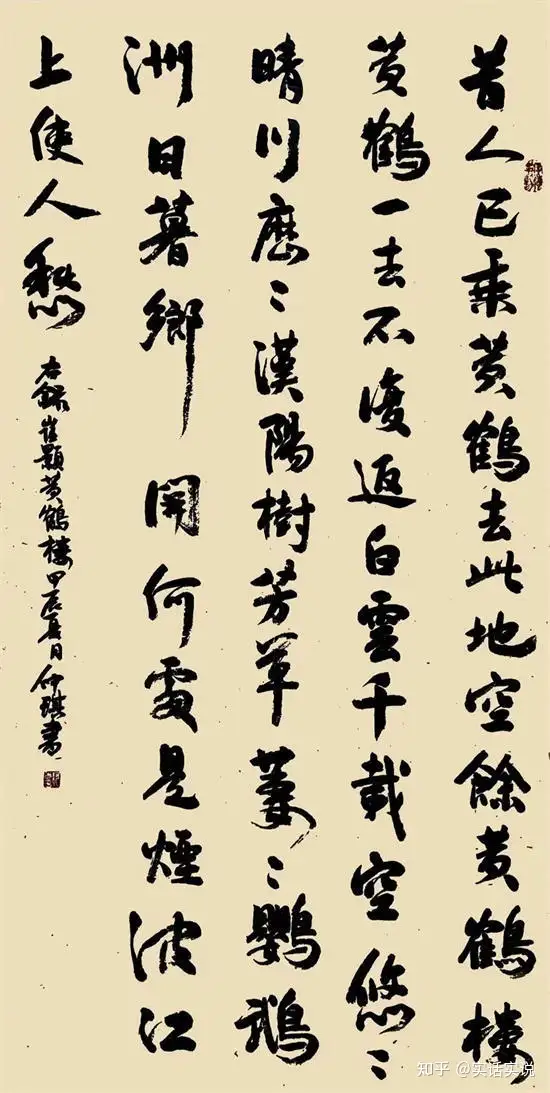 昔人已乘黄鶴去此地空餘黄鶴樓
黄鶴一去不復返白雲千載空悠〻
晴川歷〻漢陽樹芳草萋〻鸚鵡
洲日暮鄉關何處是煙波江
上使人愁
右錄崔顥黄鶴樓甲辰夏日仲琪書
知乎 @实话实说